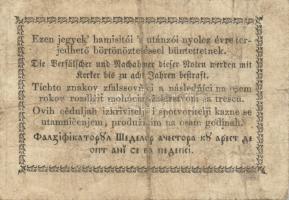 Ezen jegyek hamisitói 's utánzói nyolcz évre ter-
jedhető börtönöztetéssel büntettetnek.
Die Verfälscher und Nachahmer dieser Noten werden mit
Kerker bis zu acht Jahren bestraft.
Tichto znakov zfalšovníci a následníci na osem
rokov
Ovih ceduljah izkrivitelji i spotvoritelji kazne se
utamničenjem, produživim na osam godinah.
Фалзіфікаторул Шеделор ачестора ку арест де
опт ані се ва педепсі.